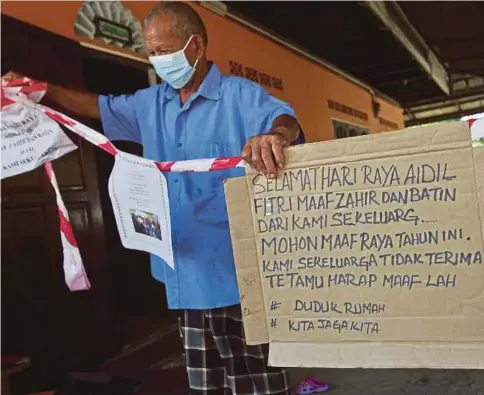 SELAMAT HARI RAYA AIDIL
FITRI MAAF ZAHIR DAN BATIN
DARI KAMI SEKELUARG....
MOHON MAAF RAYA TAHUN INI.
KAMI SEKELUARGA TIDAK TERIMA
TETAMU HARAP MAAF LAH
# DUDUK RUMAH
# KITA JAGA KITA